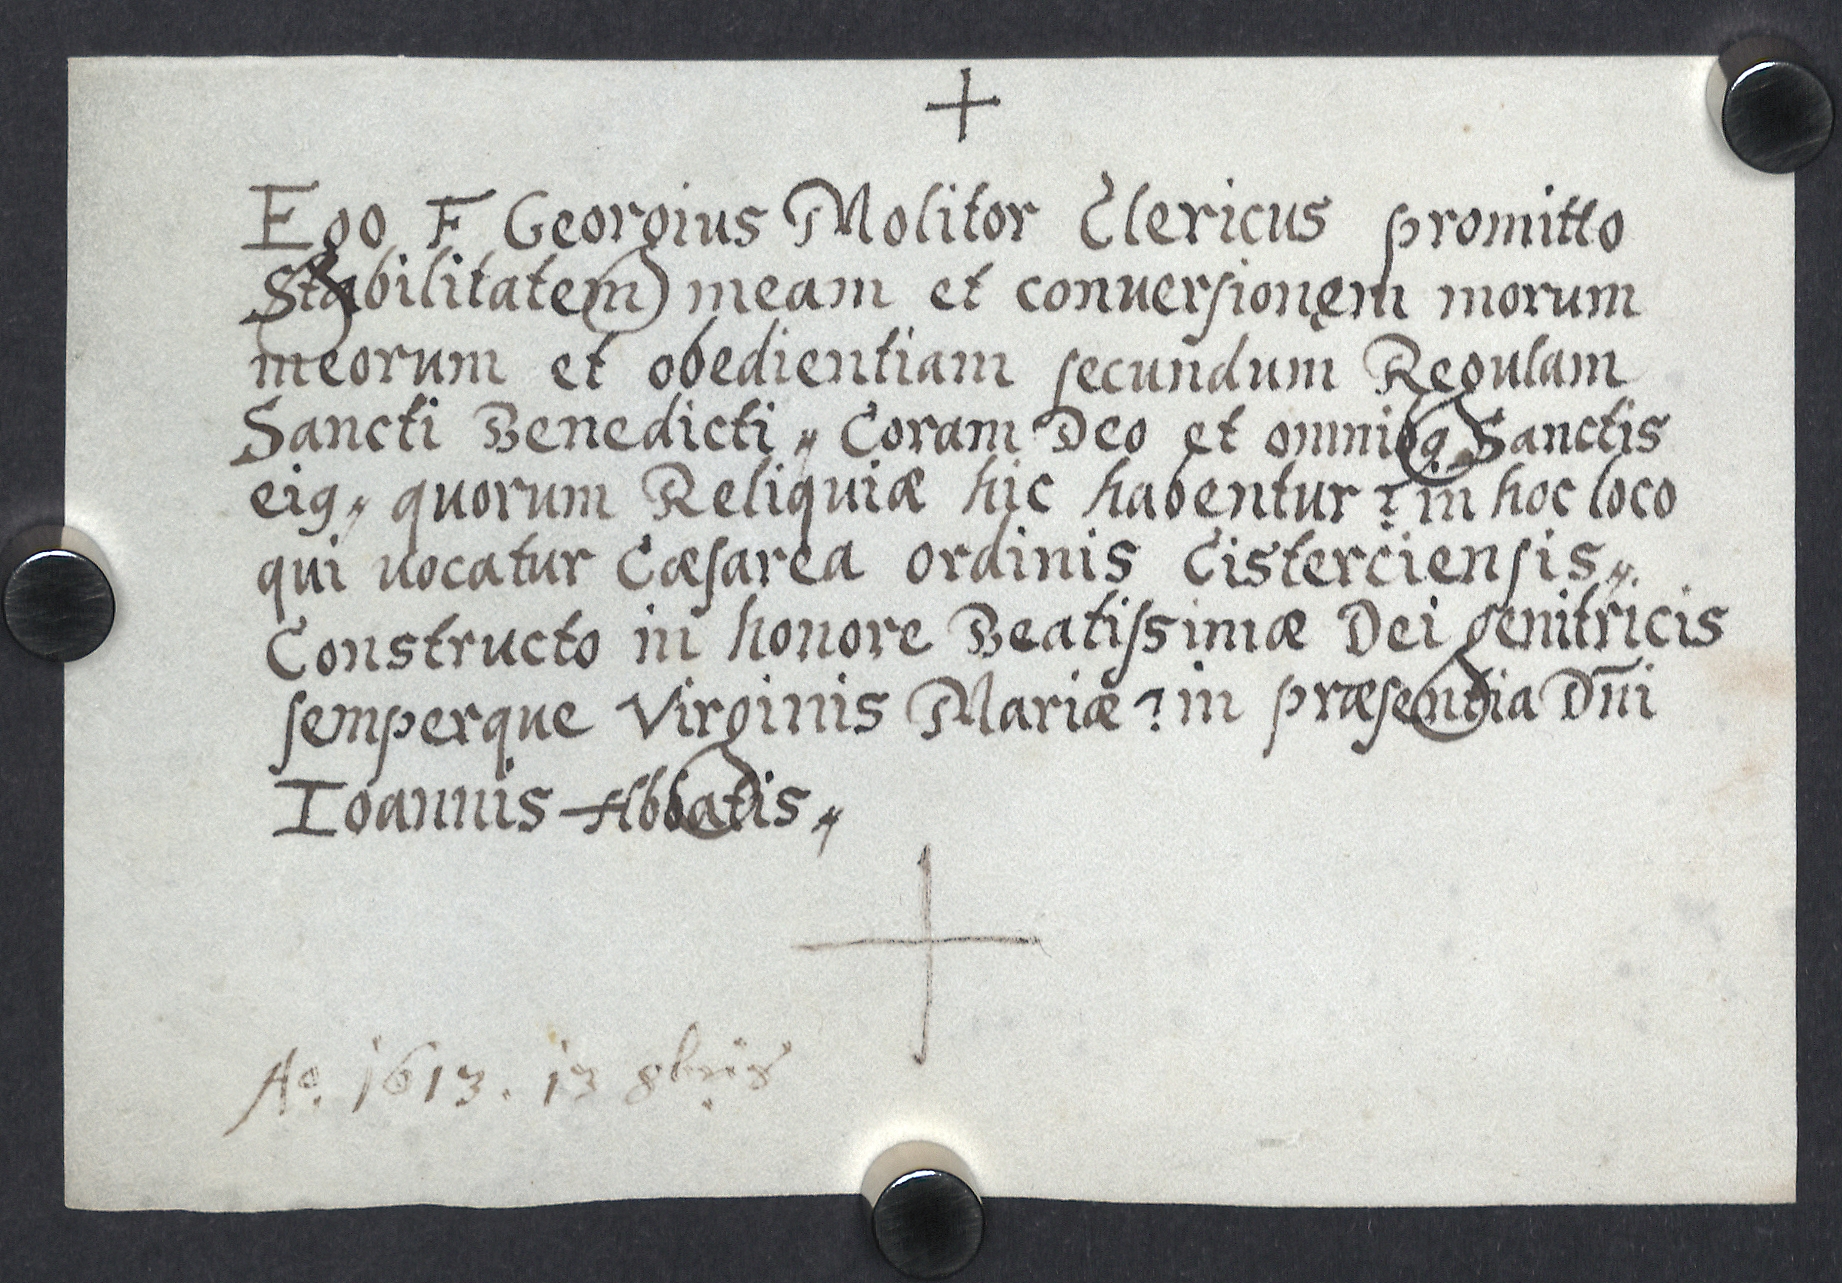 +
Ego F Georgius Molitor Clericus promitto
Stabilitatem meam et conuersionem morum
meorum et obedientiam secundum Regulam
Sancti Benedicti, Coram Deo et omnibq Sanctis
eiq, quorum Reliquiæ hic habentur: in hoc loco
qui uocatur Cæsarea ordinis Cisterciensis,
Constructo in honore Beatissimæ Dei genitricis
semperque Virginis Mariæ: in præsentia Dñi
Ioannis Abbatis,
Ao. 1613. 13 8bris